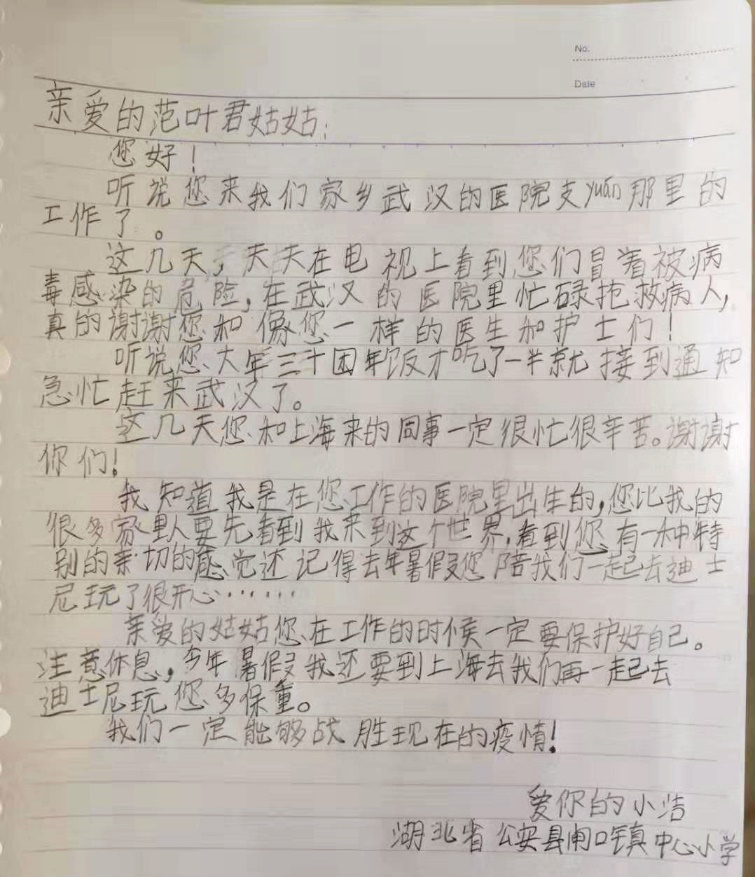 No.
Date
亲爱的范叶君姑姑:
您好!
听说您来我们家乡武汉的医院支yuán那里的
工作了。
这几天,天天在电视上看到您们冒着被病
毒感染的危险,在武汉的医院里忙碌抢救病人,
真的谢谢您和像您一样的医生和护士们!
听说您大年三十团年饭才吃了一半就接到通知
急忙赶来武汉了。
这几天您和上海来的同事一定很忙很辛苦。谢谢
你们!
我知道我是在您工作的医院里出生的,您比我的
很多家里人要先看到我来到这个世界,看到您有一种特
别的亲切的感觉还记得去年暑假您陪我们一起去迪士
尼玩了很开心……
亲爱的姑姑您在工作的时候一定要保护好自己。
注意休息,今年暑假我还要到上海去我们再一起去
迪士尼玩您多保重。
我们一定能够战胜现在的疫情!
爱你的小洁
湖北省公安县闸口镇中心小学